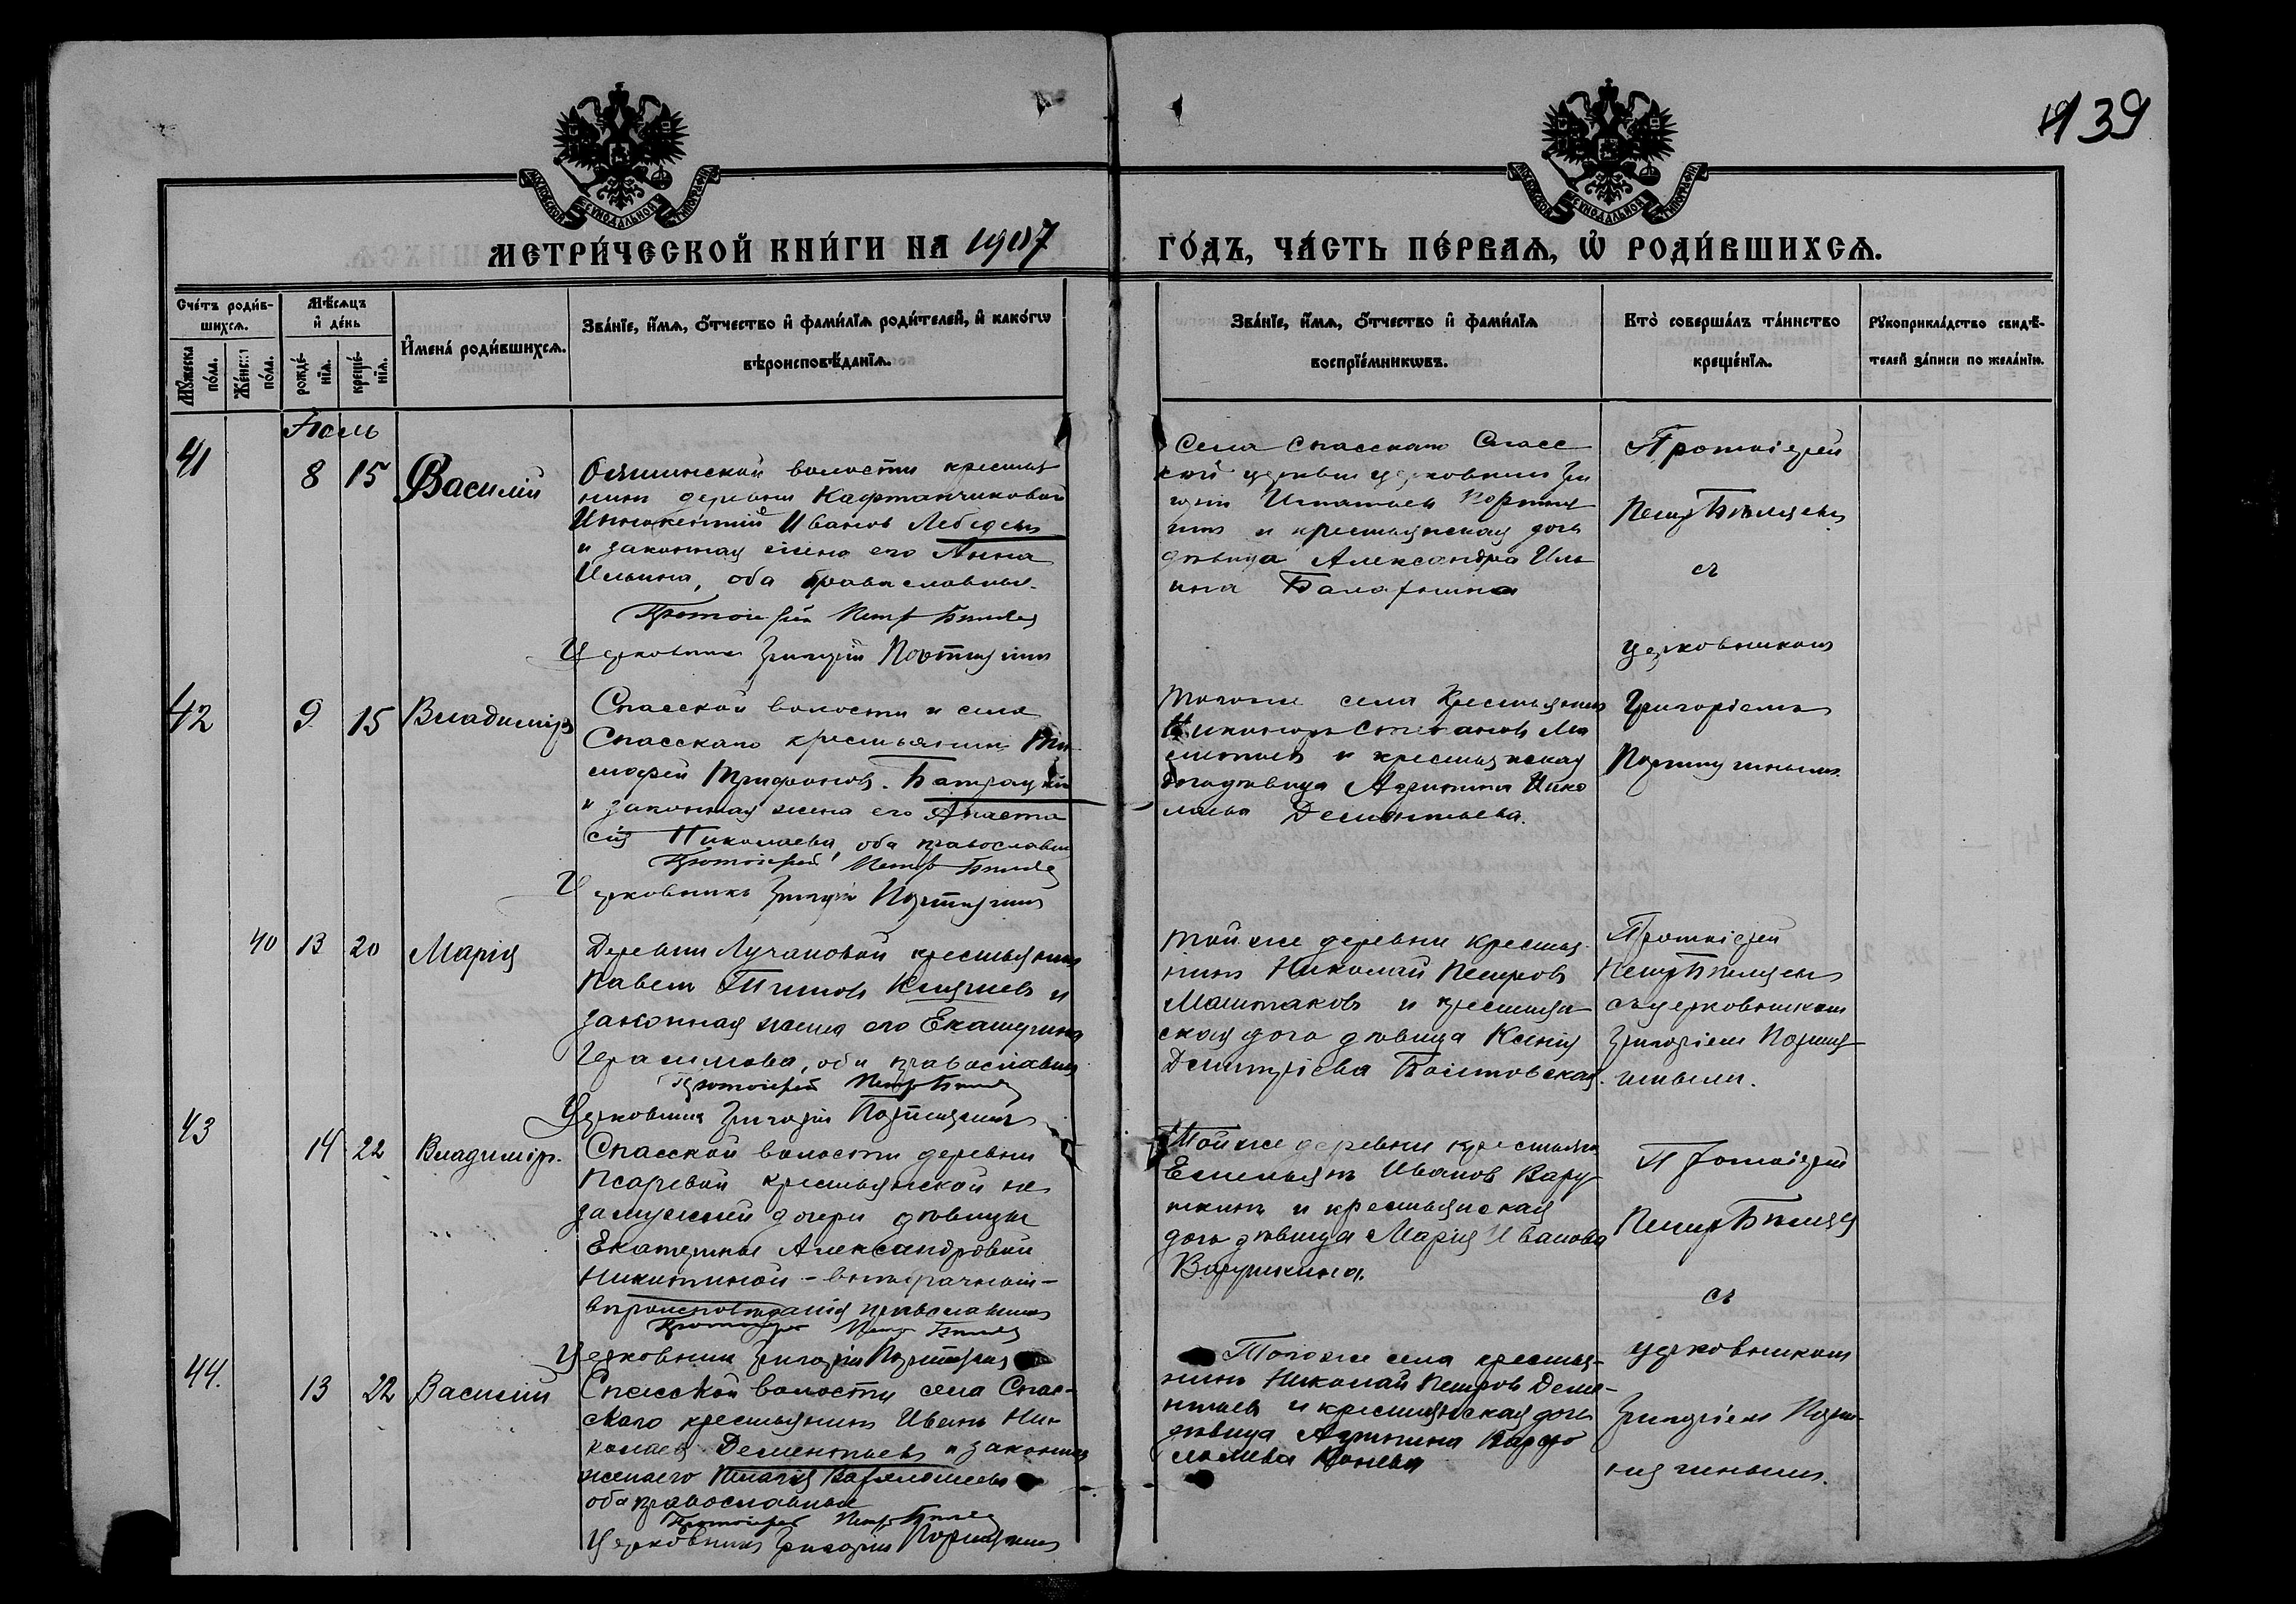 139
МЕТРИ́ЧЕСКОЙ КНИ́ГИ НА 1907
ГО́ДЪ, ЧА́СТЬ ПЕ́РВАЯ, Ѽ РОДИ́ВШИХСЯ.
Сче́тъ роди́в-
шихся.
Му́жеска по́ла.
Же́нска по́ла.
Мѣ́сяцъ
и де́нь
рожде́-
нія.
креще́-
нія.
Имена́ роди́вшихся.
Зва́ніе, и́мя, о́тчество и фами́лія роди́телей, и како́гѡ
вѣроисповѣ́данія.
Зва́ніе, и́мя, о́тчество и фами́лія
воспріе́мникѡвъ.
Кто̀ соверша́лъ та́инство
креще́нія.
Рꙋкоприкла́дство свидѣ́-
телей за́писи по жела́нію.
Іюль
41
8
15
Василій
волости крестья
нинъ деревни Кафтанчиковой
Иннокентій Иванов Лебедевъ
и законная жена его Анна
Ильина, оба православные.
Протоіерей Петръ
Церковникъ Григорій Портнягинъ
Села Спасскаго Спасс
кой церкви церковник Гри
горій Игнатьев Портня
гинъ и крестьянская дочь
дѣвица Александра Иль
ина
Протоіерей
Петръ
съ
церковникомъ
42
9
15
Владиміръ
Спасской волости и села
Спасскаго крестьянинъ Ти
мофей Трифоновъ
и законная жена его Анаста
сія Николаева, оба православн
Протоіерей Петръ
Церковникъ Григорій Портнягинъ
Того же села Крестьянинъ
Никаноръ Степановъ
и крестьянская
дочь дѣвица Агрипина Нико
лаева Дементьева.
Григоріемъ
Портнягинымъ.
40
13
20
Марія
Деревни Лучановой крестьянинъ
Павелъ Титовъ и
законная жена его Екатерина
Герасимова, оба православные
Протоіерей Петръ
Церковникъ Григорій Портнягинъ
Той же деревни крестья
нинъ Николай Петровъ
Маштаковъ и крестьян
ская дочь дѣвица Ксенія
Димитріева
Протоіерей
Петръ
съ церковникомъ
Григоріем Портня
гинымъ.
43
14
22
Владиміръ.
Спасской волости деревни
Писаревой крестьянской не
замужней дочери дѣвицы
Екатерины Александровой
Никитиной – внѣбрачный –
вѣроисповѣданія православнаго
Протоіерей Петръ
Церковник Григорій Портнягинъ
Той же деревни крестьянин
Емельянъ Иванов Вару
шкинъ и крестьянская
дочь дѣвица Марія Иванова
Варушкина.
Протоіерей
Петръ
съ
церковникомъ
44.
13
22
Василій
Спасской волости села Спас-
скаго крестьянинъ Иванъ Ни
колаев Дементьевъ и законная
жена его Пелагія
оба православные
Протоіерей Петръ
Церковникъ Григорій Портнягинъ
Того же села крестья-
нинъ Николай Петров Деме-
нтьев и крестьянская дочь
дѣвица Агрипина Варфо
ломеева Конева
Григоріем Порт-
нягинымъ.